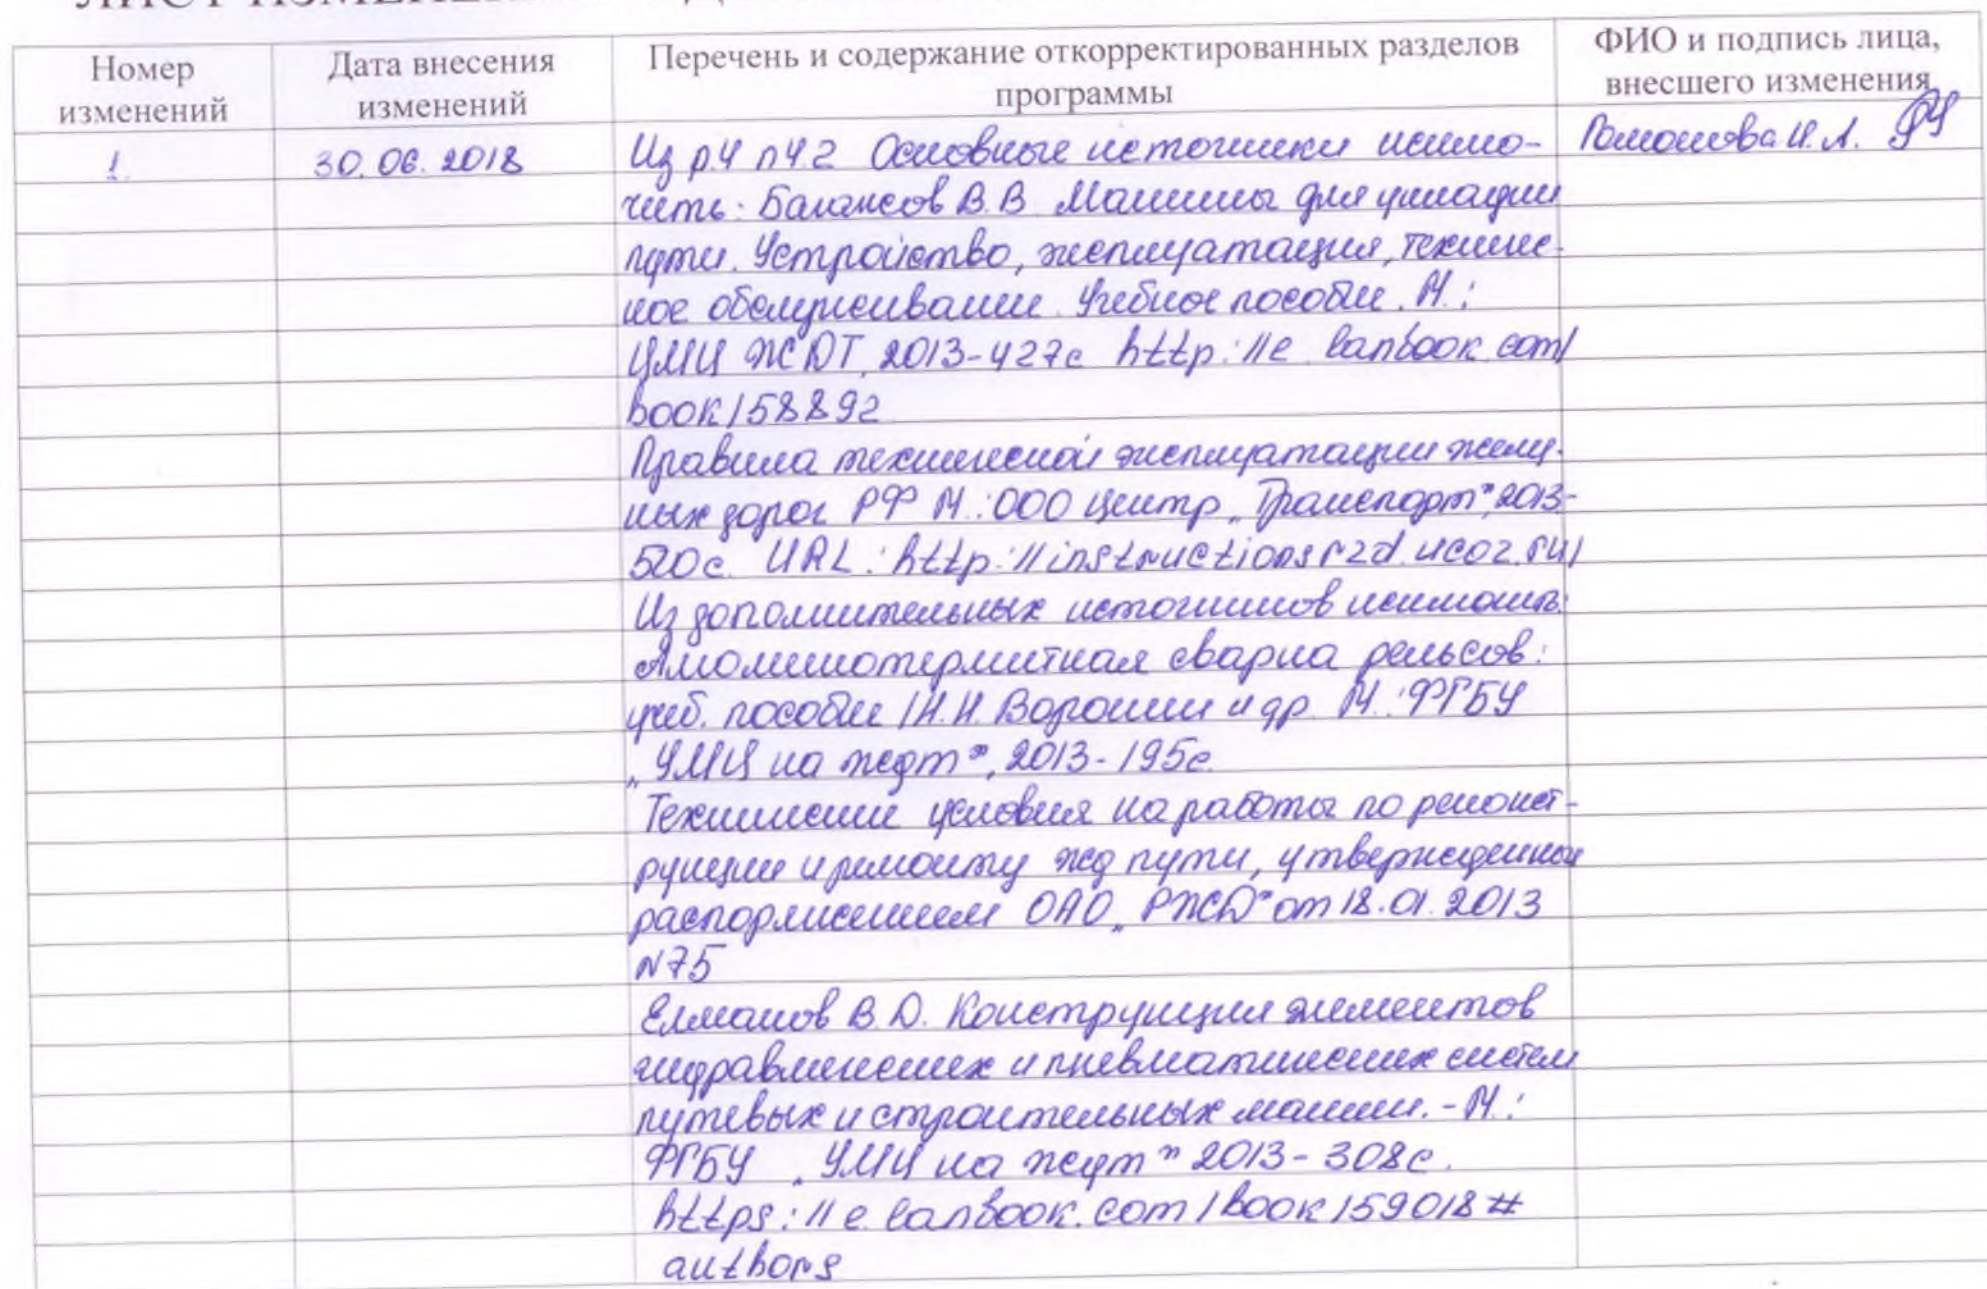 Номер изменений
Дата внесения изменений
Перечень и содержание откорректированных разделов программы
ФИО и подпись лица, внесшего изменения
1.
30.06.2018
Из р.4 п4.2 Основные источники исклю-
чить: Балансов В.В. Машины для укладки
пути. Устройство, эксплуатация, техниче-
ное обслуживание. Учебное пособие. М.:
УМЦ ЖДТ, 2013-427с http://e.lanbook.com/
book/58892
Правила технической эксплуатации желез-
ных дорог РФ М.: ООО центр „Транспорт", 2013-
520с. URL: http://instructionsrzd.ucoz.ru/
Из дополнительных источников исключить:
Алюминотермитная сварка рельсов:
учеб. пособие /Н.Н. Воронин и др. М.: ФГБУ
„УМЦ на ждт", 2013-195с.
Технические условия на работы по реконст-
рукции и ремонту жд пути, утвержденной
распоряжением ОАО „РЖД" от 18.01.2013
N75
Елманов В.Д. Конструкция элементов
гидравлических и пневматических систем
путевых и строительных машин. - М.:
ФГБУ „УМЦ на ждт" 2013-308с.
https://e.lanbook.com/book/59018#
authors
И.А.